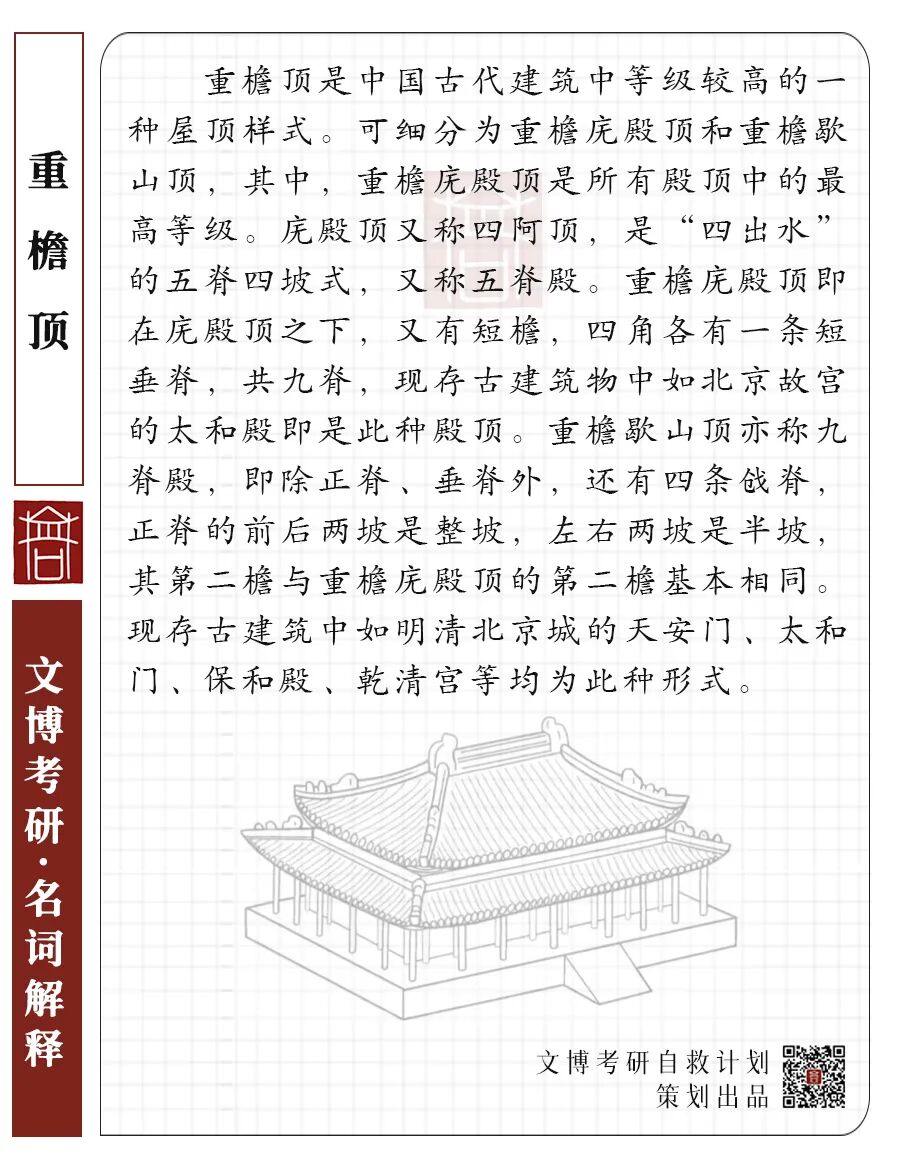 重檐顶
文博考研·名词解释
重檐顶是中国古代建筑中等级较高的一
种屋顶样式。可细分为重檐庑殿顶和重檐歇
山顶，其中，重檐庑殿顶是所有殿顶中的最
高等级。庑殿顶又称四阿顶，是“四出水”
的五脊四坡式，又称五脊殿。重檐庑殿顶即
在庑殿顶之下，又有短檐，四角各有一条短
垂脊，共九脊，现存古建筑物中如北京故宫
的太和殿即是此种殿顶。重檐歇山顶亦称九
脊殿，即除正脊、垂脊外，还有四条戗脊，
正脊的前后两坡是整坡，左右两坡是半坡，
其第二檐与重檐庑殿顶的第二檐基本相同。
现存古建筑中如明清北京城的天安门、太和
门、保和殿、乾清宫等均为此种形式。
文博考研自救计划
策划出品